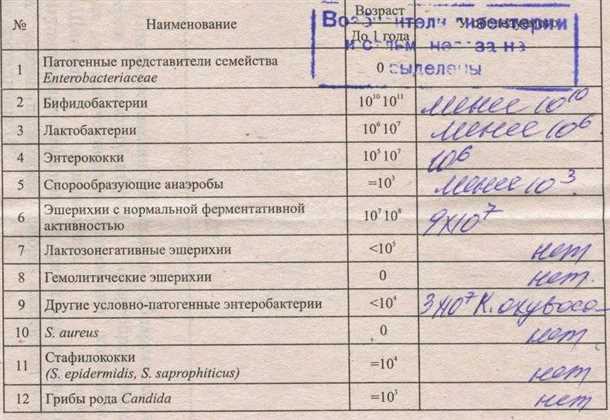 № Наименование Возраст
До 1 года
Возбудители дизентерии
и сальмонеллеза не
выделены
1 Патогенные представители семейства
Enterobacteriaceae 0
2 Бифидобактерии 10¹⁰ 10¹¹ менее 10¹⁰
3 Лактобактерии 10⁶ 10⁷ менее 10⁶
4 Энтерококки 10⁵ 10⁷ 10⁶
5 Спорообразующие анаэробы =10³ менее 10³
6 Эшерихии с нормальной ферментативной
активностью 10⁷ 10⁸ 9х10⁷
7 Лактозонегативные эшерихии <10⁵ нет
8 Гемолитические эшерихии 0 нет
9 Другие условно-патогенные энтеробактерии <10⁴ 3х10⁷ К.
10 S. aureus 0 нет
11 Стафилококки
(S. epidermidis, S. saprophiticus) =10⁴ нет
12 Грибы рода Candida =10³ нет